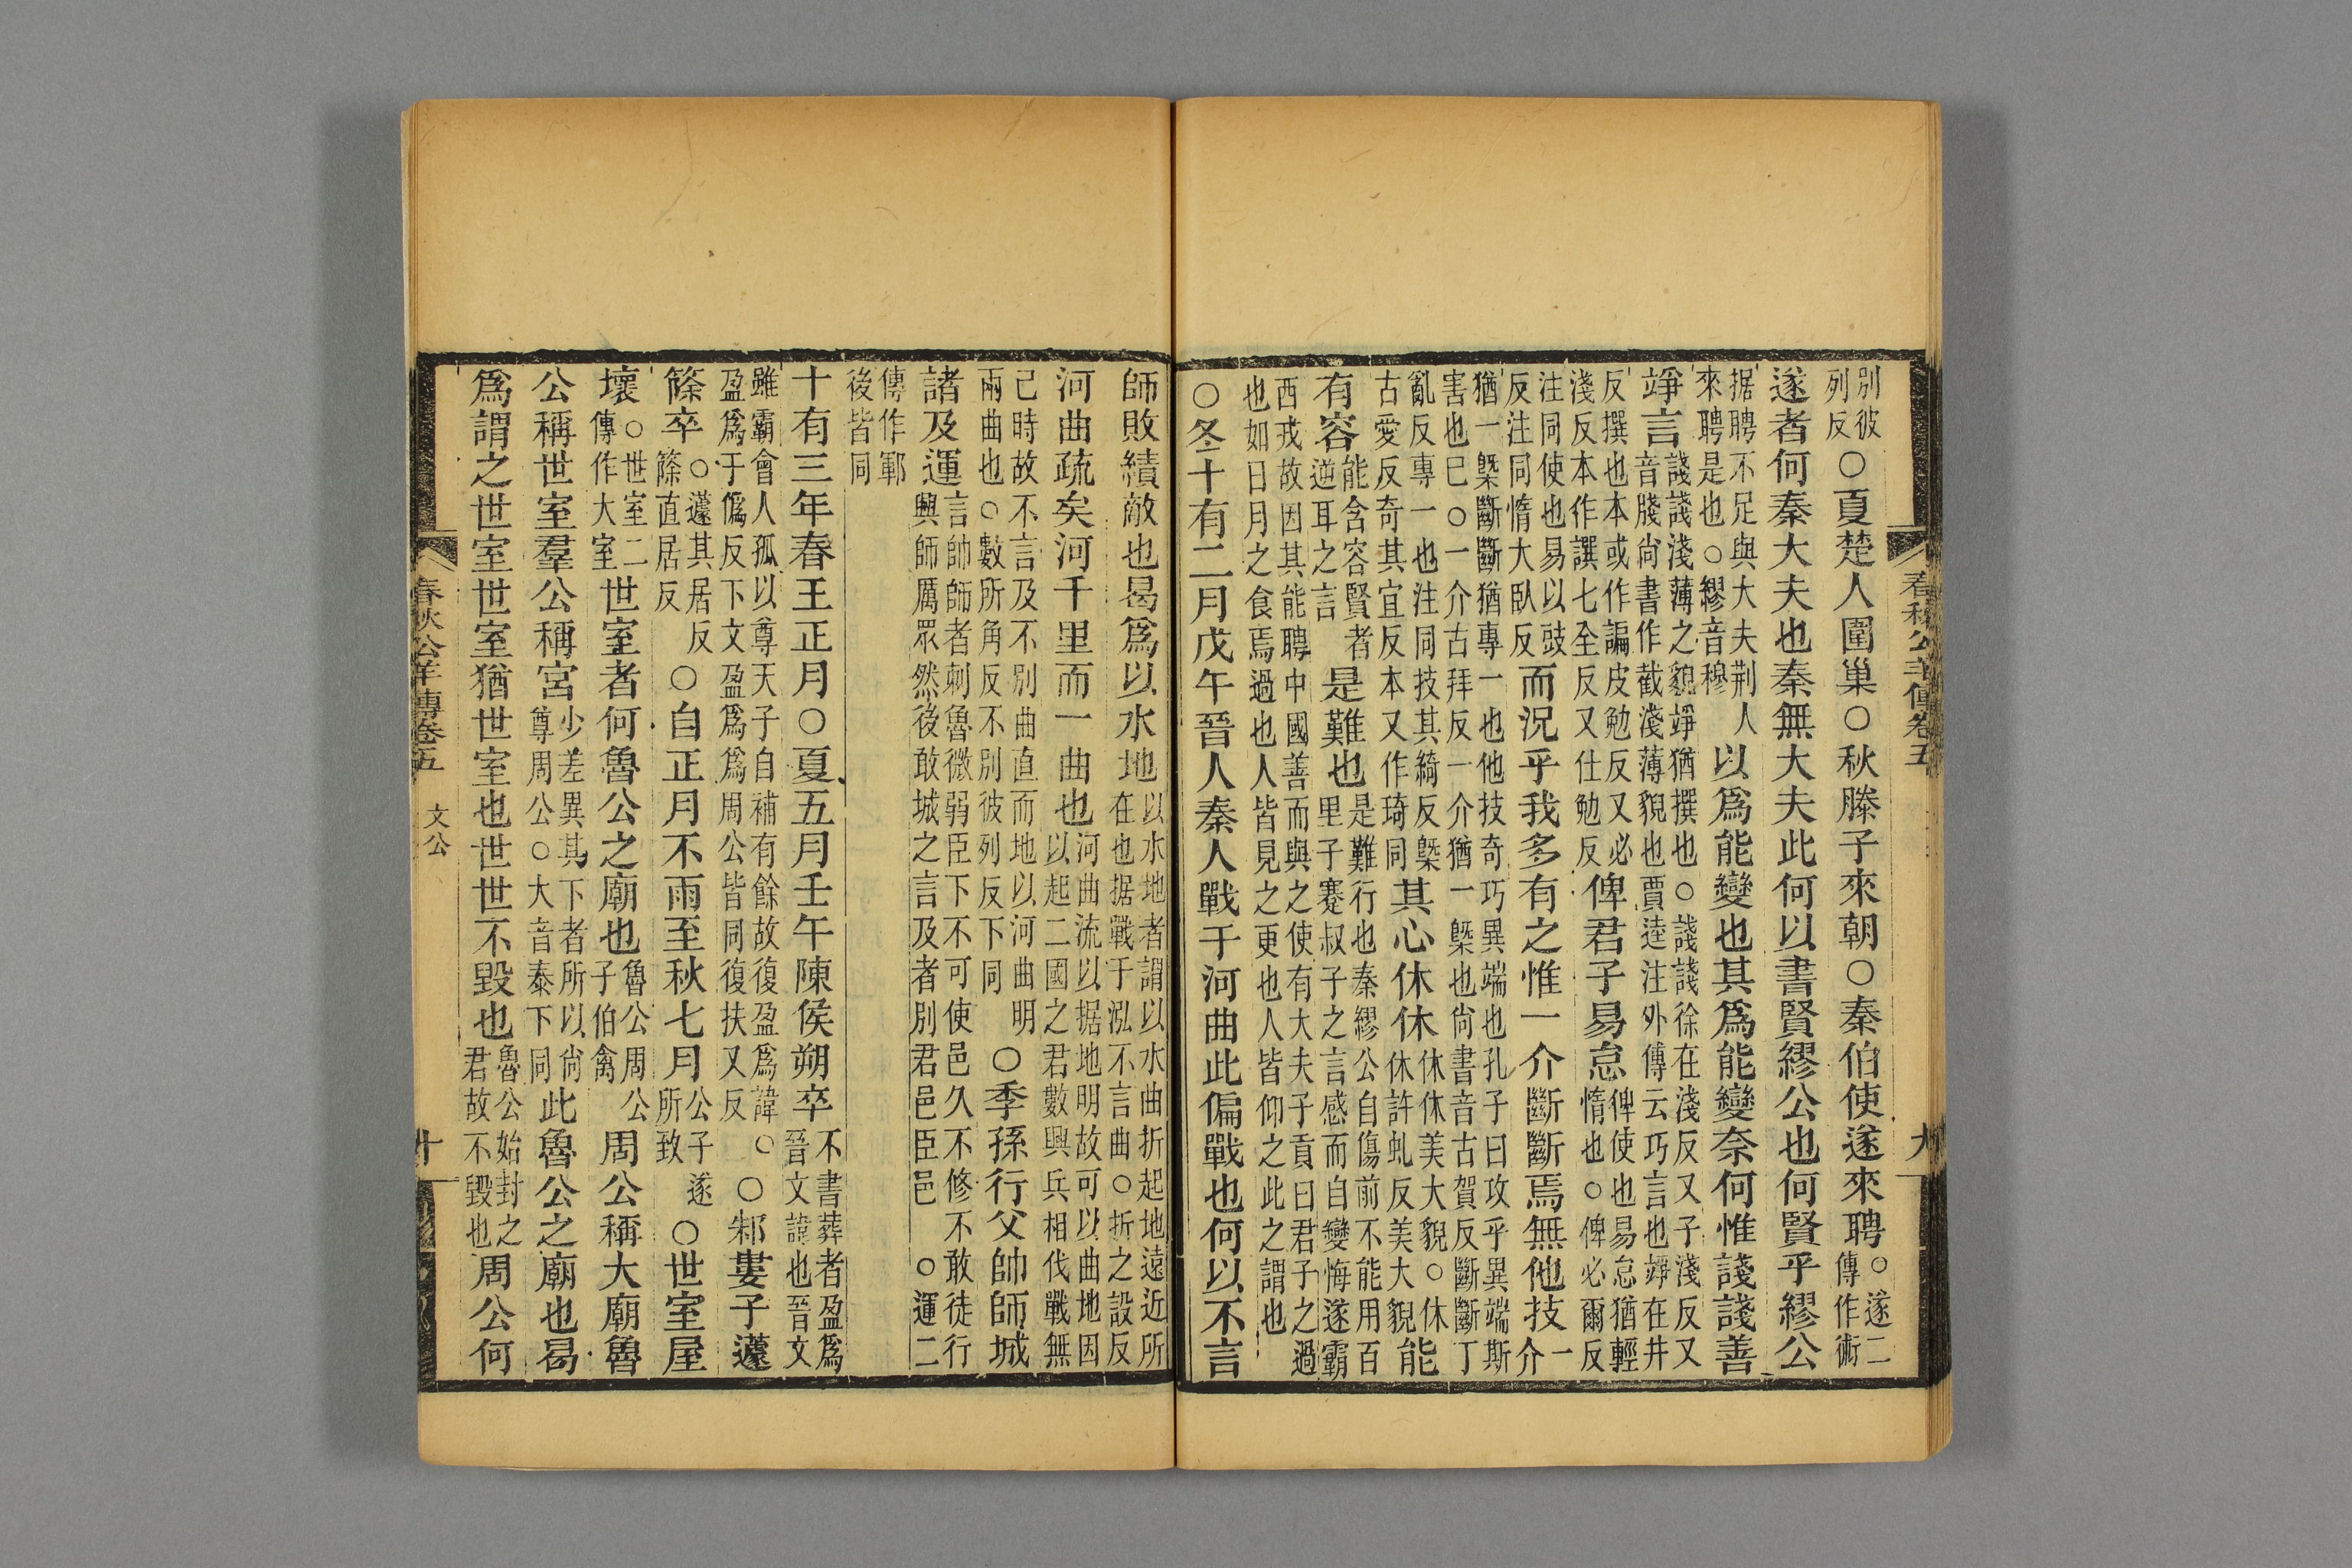 別彼列反○夏楚人圍巢○秋滕子來朝○秦伯使遂來聘○遂二傳作術
遂者何秦大夫也秦無大夫此何以書賢繆公也何賢乎繆公
据聘不足與大夫荆人來聘是也○繆音穆以爲能變也其爲能變奈何惟諓諓善
竫言諓諓淺薄之貌竫猶撰也○諓諓徐在淺反又子淺反又音牋尙書作截淺薄貌也賈逵注外傳云巧言也竫在井
反撰也本或作諞皮勉反又必淺反本作譔七全反又仕勉反俾君子易怠俾使也易怠猶輕惰也○俾必爾反
注同使也易以豉反注同惰大臥反而況乎我多有之惟一介斷斷焉無他技一介
猶一槩斷斷猶專一也他技奇巧異端也孔子曰攻乎異端斯害也已○一介古拜反一介猶一槩也尙書音古賀反斷斷丁
亂反專一也注同技其綺反槩古愛反奇其宜反本又作琦同其心休休休休美大貌○休休許虬反美大貌能
有容能含容賢者逆耳之言是難也是難行也秦繆公自傷前不能用百里子蹇叔子之言感而自變悔遂霸
西戎故因其能聘中國善而與之使有大夫子貢曰君子之過也如日月之食焉過也人皆見之更也人皆仰之此之謂也
○冬十有二月戊午晉人秦人戰于河曲此偏戰也何以不言
春秋公羊傳卷五
九
師敗績敵也曷爲以水地以水地者謂以水曲折起地遠近所在也据戰于泓不言曲○折之設反
河曲疏矣河千里而一曲也河曲流以据地明故可以曲地因以起二國之君數興兵相伐戰無
已時故不言及不別曲直而地以河曲明兩曲也○數所角反不別彼列反下同○季孫行父帥師城
諸及運言帥師者刺魯微弱臣下不可使邑久不修不敢徒行興師厲眾然後敢城之言及者別君邑臣邑○運二
傳作鄆後皆同
十有三年春王正月○夏五月壬午陳侯朔卒不書葬者盈爲晉文諱也晉文
雖霸會人孤以尊天子自補有餘故復盈爲諱○盈爲于僞反下文盈爲爲周公皆同復扶又反○邾婁子蘧
篨卒○蘧其居反篨直居反○自正月不雨至秋七月公子遂所致○世室屋
壞○世室二傳作大室世室者何魯公之廟也魯公周公子伯禽周公稱大廟魯
公稱世室羣公稱宮少差異其下者所以尙尊周公○大音泰下同此魯公之廟也曷
爲謂之世室世室猶世室也世世不毀也魯公始封之君故不毀也周公何
春秋公羊傳卷五
文公
十